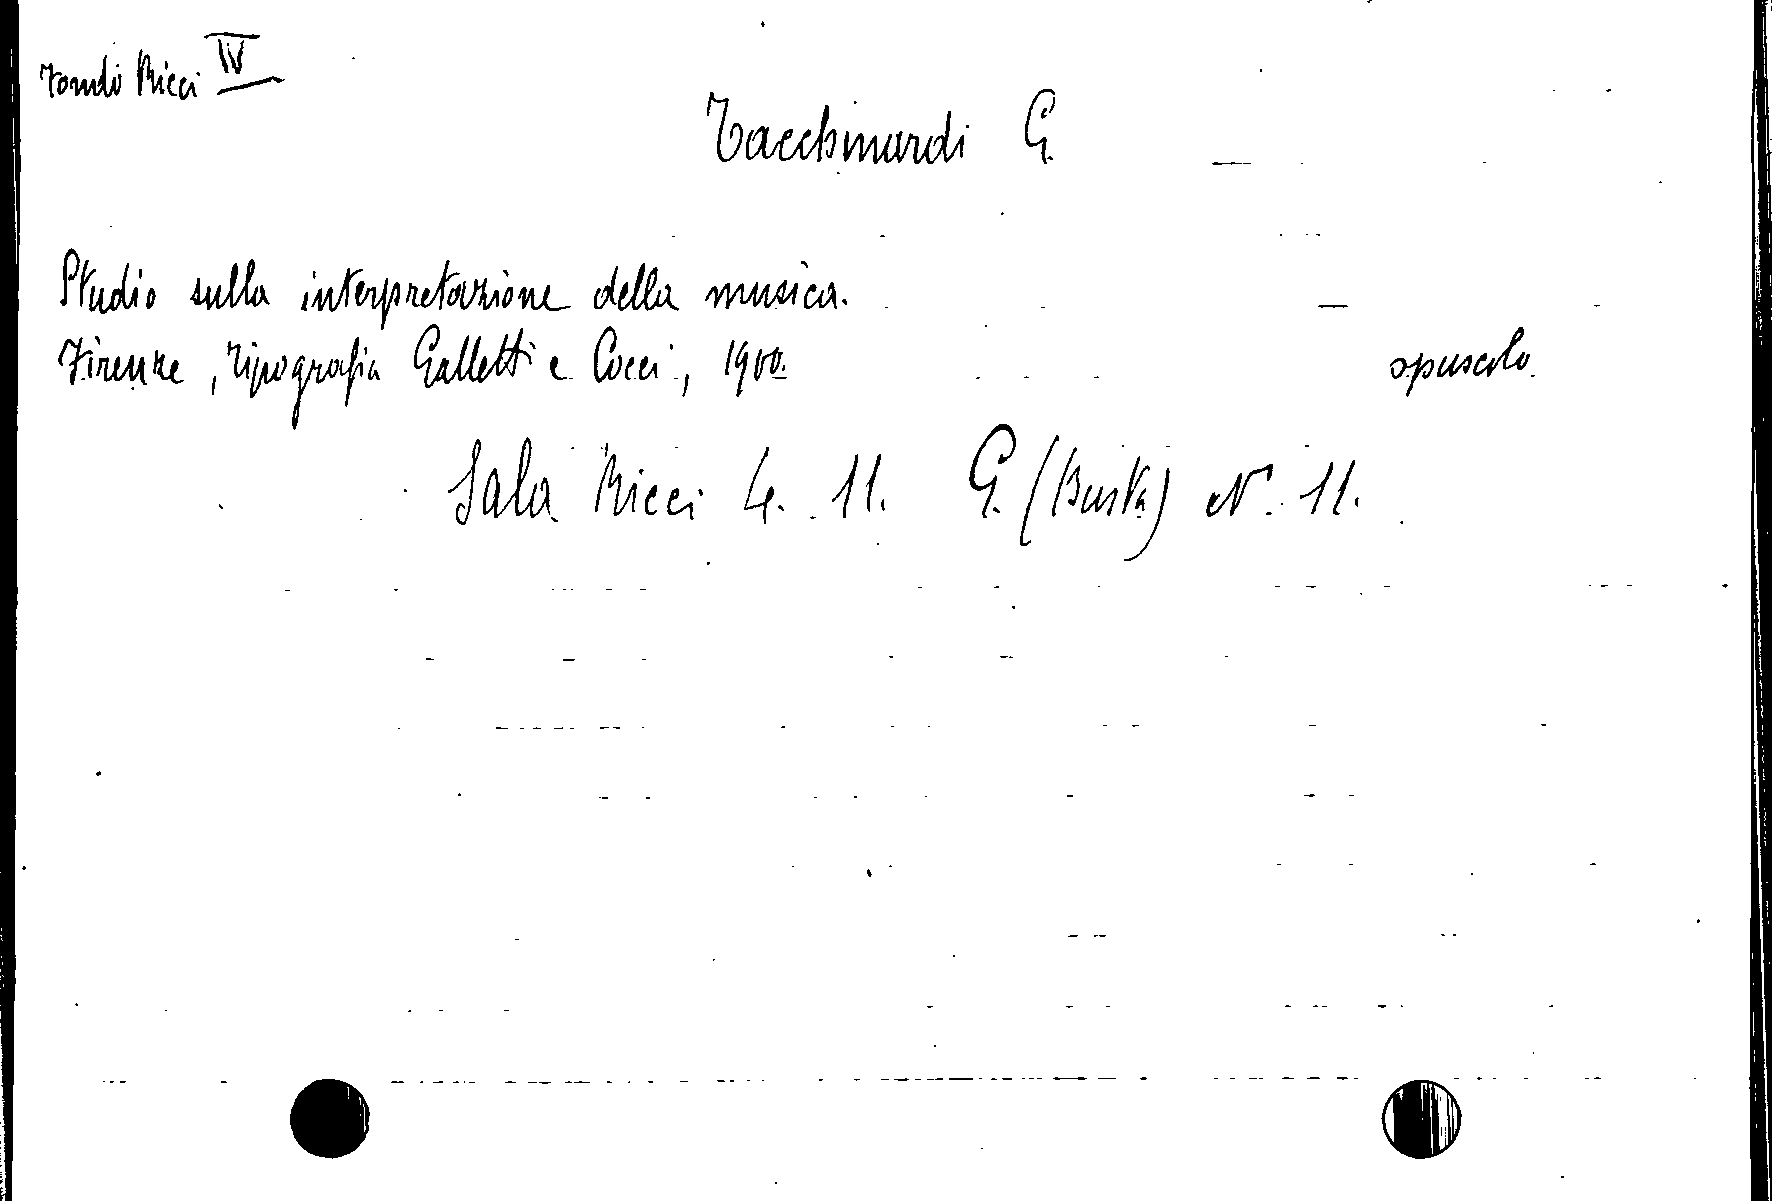 Fondo Ricci IV
Tacchinardi G.
Studio sulla interpretazione della musica.
Firenze, Tipografia Galletti e Cocci, 1900. opuscolo.
Sala Ricci 4. 11. G. (Busta) N. 11.